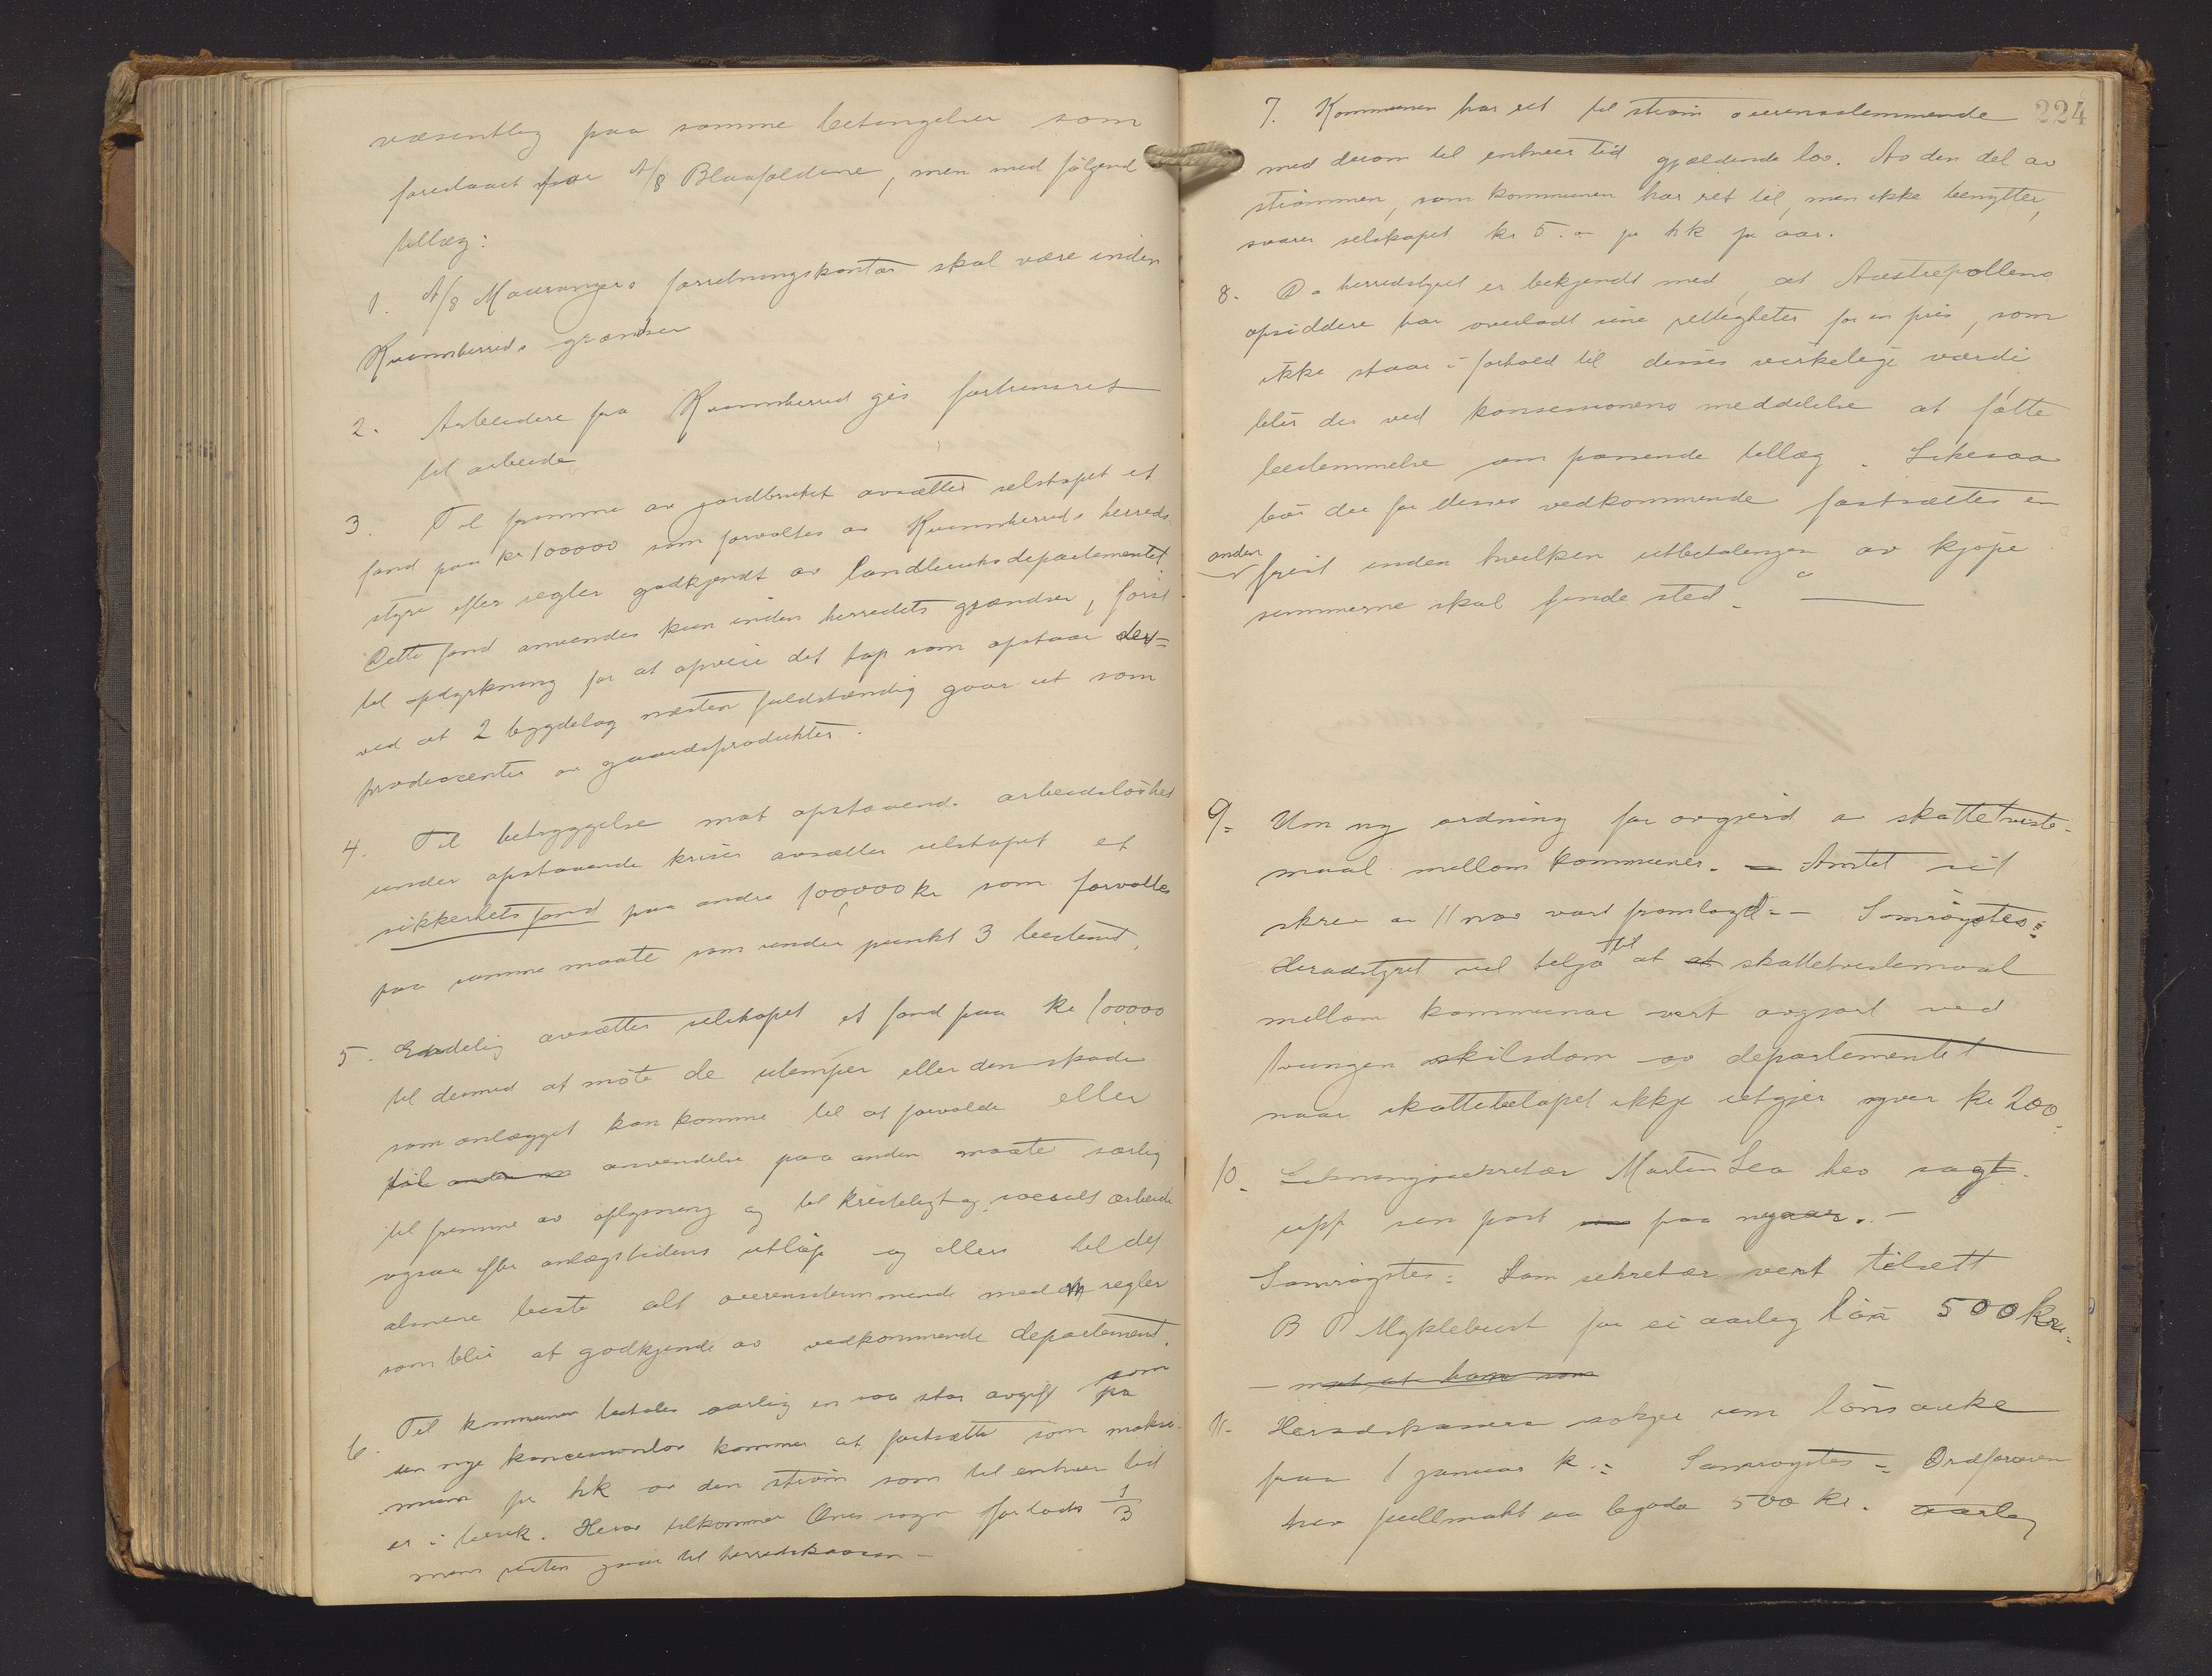 væsentlig paa samme betingelser som
foreslaaet for A/S Blaafaldene, men med følgende
tillæg:
1. A/S Maurangers forretningskontor skal være inden
Kvinnherreds grænser
2. Arbeidere fra Kvinnherred gis fortrinsret
til arbeide
3. Til fremme av jordbruket avsætter selskapet et
fond paa kr 100000 som forvaltes av Kvinnherreds herreds-
styre efter regler godkjendt av landbruksdepartementet.
Dette fond anvendes kun inden herredets grændser, først
til opdyrkning for at opveie det tap som opstaar der=
ved at 2 bygdelag næsten fuldstændig gaar ut som
producenter av gaardsprodukter.
4. Til betryggelse mot opstaaende arbeidsløshet
under opstaaende kriser avsætter selskapet et
sikkerhetsfond paa andre 100,000 kr som forvaltes
paa samme maate som under punkt 3 bestemt.
5. Endelig avsætter selskapet et fond paa kr 100000
til dermed at møte de ulemper eller den skade
som anlægget kan komme til at forvolde eller
til anden anvendelse paa anden maate særlig
til fremme av oplysning og til kristeligt og socialt arbeide
ogsaa efter anlægstidens utløp og ellers til det
almene beste alt overensstemmende med regler
som blir at godkjende av vedkommende departement.
6. Til kommunen betales aarlig en saa stor avgift som
den nye koncessionslov kommer at fastsætte som maksi-
mum pr hk av den strøm som til enhver tid
er i bruk. Herav tilkommer Ænes sogn forlods 1/3
mens resten gaar til herredskassen –
224
7. Kommunen har ret til strøm overensstemmende
med derom til enhver tid gjældende lov. Av den del av
strømmen, som kommunen har ret til, men ikke benytter,
svarer selskapet kr 5.- pr hk pr aar.
8. Da herredstyret er bekjendt med, at Austrepollens
opsiddere har overladt sine rettigheter for en pris, som
ikke staar i forhold til disses virkelige værdi
blir der ved konsessionens meddelelse at fatte
bestemmelse om passende tillæg. Likesaa
bør der for disses vedkommende fastsættes en
anden frist inden hvilken utbetalingen av kjøpe
summerne skal finde sted. –
9= Um ny ordning for avgjerd av skattetviste-
maal mellom kommuner. – Amtet sit
skriv av 11 nov vart framlagd. – Samrøystes:
Heradstyret vil telja til at at skattetvistemaal
mellom kommunar vert avgjort ved
tvungen skilsdom av departementet
naar skattebeløpet ikkje utgjer yver kr 200.
10. Likningssekretær Martin Lea hev sagt
upp sin post paa nyaar. –
Samrøystes: Som sekretær vert tilsett
B B Myklebust for ei aarleg løn 500 kr.
– mot at han som
11. Heradskassera søkjer um lønsauke
fraa 1 januar k.: Samrøystes = Ordføraren
hev fullmakt aa bjoda 500 kr. aarleg